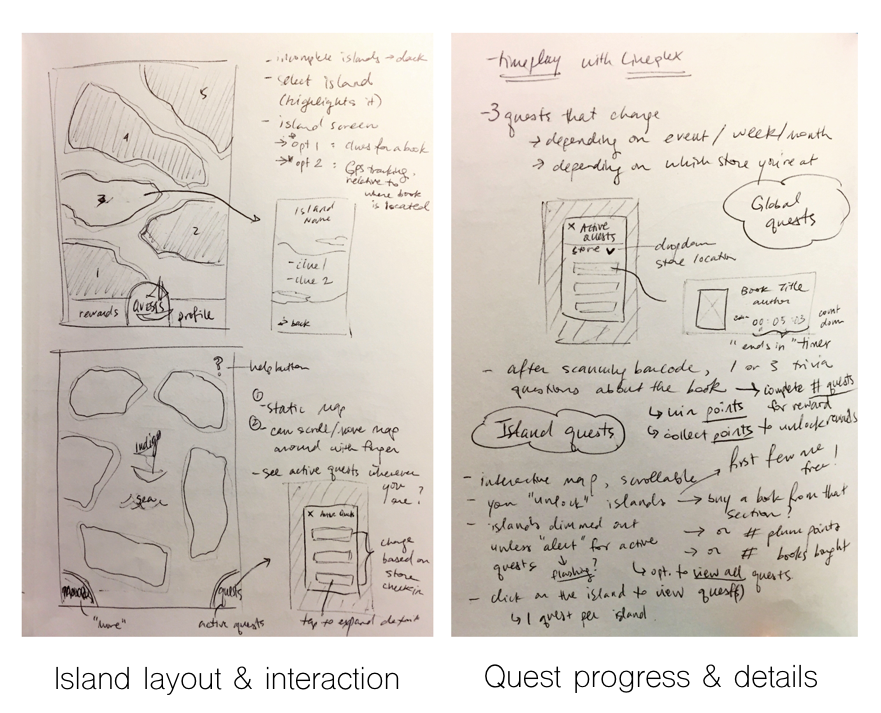 - incomplete islands → dark
- select island
(highlights it)
- island screen
→ opt 1 = clues for a book
→ opt 2 : GPS tracking
relative to
where book
is located
5
4
3
2
1
rewards
Quests
profile
Island
Name
- clue 1
- clue 2
→ back
?
help button
①
- static map
②
- can scroll/move map
around with finger
- see active quests wherever
you
are?
Indigo
Sea
rewards
"more"
quests
active quests
X Active Quests
change
based on
store
checkin
tap to expand detail
- timeplay with Cineplex
- 3 quests that change
→ depending on event / week / month
→ depending on which store you're at
Global
quests
X Active
Quests
Store
dropdown
store location
Book Title
author
00:05:23
count
down
"ends in" timer
- after scanning barcode, 1 or 3 trivia
questions about the book → complete # quests
for reward
↳ win points
↳ collect points to unlock rewards
Island quests
- interactive map, scrollable
first few are
free!
- you "unlock" islands → buy a book from that
section?
- islands dimmed out
unless "alert" for active
quests
→ or # plum points
→ or # books bought
↳ flashing?
↳ opt. to view all quests
- click on the island to view quest(s)
↳ 1 quest per island
Island layout & interaction
Quest progress & details